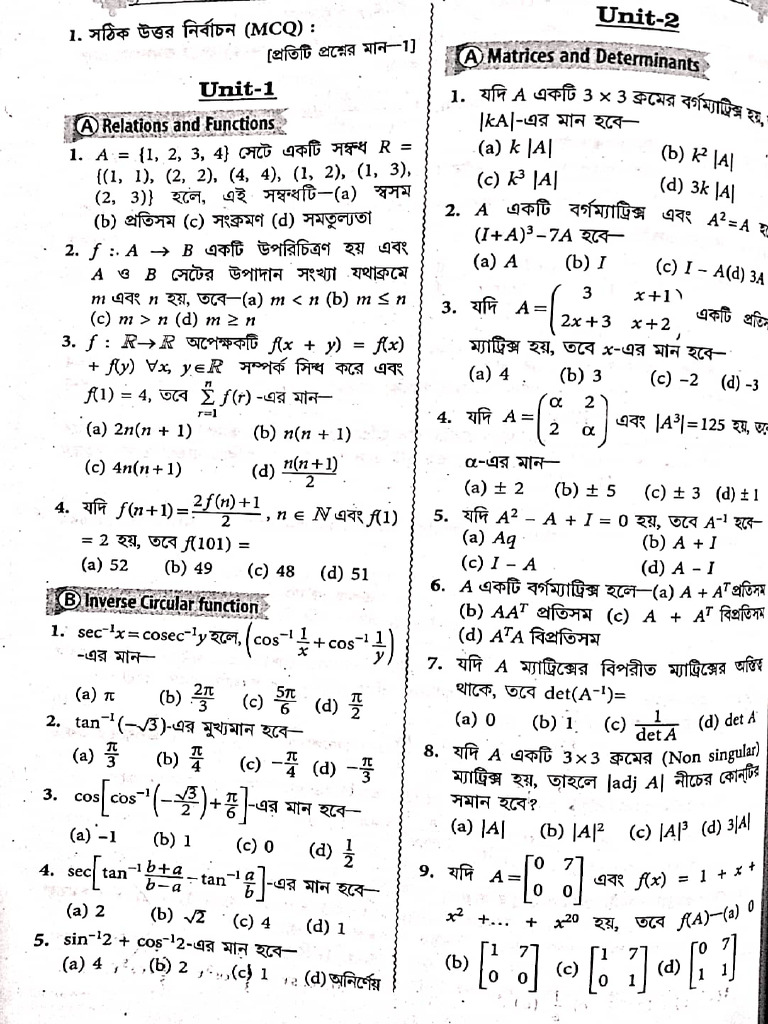 1. সঠিক উত্তর নির্বাচন (MCQ) :
[প্রতিটি প্রশ্নের মান—1]
Unit-1
(A) Relations and Functions
1. A = {1, 2, 3, 4} সেটে একটি সম্বন্ধ R =
{(1, 1), (2, 2), (4, 4), (1, 2), (1, 3),
(2, 3)} হলে, এই সম্বন্ধটি—(a) স্বসম
(b) প্রতিসম (c) সংক্রমণ (d) সমতুল্যতা
2. f : A → B একটি উপরিচিত্রণ হয় এবং
A ও B সেটের উপাদান সংখ্যা যথাক্রমে
m এবং n হয়, তবে—(a) m < n (b) m ≤ n
(c) m > n (d) m ≥ n
3. f : ℝ→ℝ অপেক্ষকটি f(x + y) = f(x)
+ f(y) ∀x, y∈ℝ সম্পর্ক সিদ্ধ করে এবং
f(1) = 4, তবে n∑r=1 f(r) -এর মান—
(a) 2n(n + 1) (b) n(n + 1)
(c) 4n(n+1) (d) n(n+1)/2
4. যদি f(n+1)= (2f(n)+1)/2 , n ∈ ℕ এবং f(1)
= 2 হয়, তবে f(101) =
(a) 52 (b) 49 (c) 48 (d) 51
(B) Inverse Circular function
1. sec⁻¹x=cosec⁻¹y হলে, (cos⁻¹ 1/x + cos⁻¹ 1/y)
-এর মান—
(a) π (b) 2π/3 (c) 5π/6 (d) π/2
2. tan⁻¹(−√3)-এর মুখ্যমান হবে—
(a) π/3 (b) π/4 (c) −π/4 (d) −π/3
3. cos[cos⁻¹(−√3/2)+π/6]-এর মান হবে—
(a) −1 (b) 1 (c) 0 (d) 1/2
4. sec[tan⁻¹ (b+a)/(b−a) − tan⁻¹ a/b]-এর মান হবে—
(a) 2 (b) √2 (c) 4 (d) 1
5. sin⁻¹2 + cos⁻¹2-এর মান হবে—
(a) 4 (b) 2 (c) 1 (d) অনির্ণেয়
Unit-2
(A) Matrices and Determinants
1. যদি A একটি 3 × 3 ক্রমের বর্গম্যাট্রিক্স হয়,
|kA|-এর মান হবে—
(a) k |A| (b) k² |A|
(c) k³ |A| (d) 3k |A|
2. A একটি বর্গম্যাট্রিক্স এবং A²=A
(I+A)³−7A হবে—
(a) A (b) I (c) I − A (d) 3A
3. যদি A = ( 3 x+1
2x+3 x+2 ) একটি
ম্যাট্রিক্স হয়, তবে x-এর মান হবে—
(a) 4 (b) 3 (c) −2 (d) −3
4. যদি A = ( α 2
2 α ) এবং |A³|=125 হয়,
α-এর মান—
(a) ± 2 (b) ± 5 (c) ± 3 (d) ± 1
5. যদি A² − A + I = 0 হয়, তবে A⁻¹ হবে—
(a) Aq (b) A + I
(c) I − A (d) A − I
6. A একটি বর্গম্যাট্রিক্স হলে—(a) A + Aᵀ প্রতিসম
(b) AAᵀ প্রতিসম (c) A + Aᵀ বিপ্রতিসম
(d) AᵀA বিপ্রতিসম
7. যদি A ম্যাট্রিক্সের বিপরীত ম্যাট্রিক্সের অস্তিত্ব
থাকে, তবে det(A⁻¹)=
(a) 0 (b) 1 (c) 1/det A (d) det A
8. যদি A একটি 3×3 ক্রমের (Non singular)
ম্যাট্রিক্স হয়, তাহলে |adj A| নীচের কোন্‌টির
সমান হবে?
(a) |A| (b) |A|² (c) |A|³ (d) 3|A|
9. যদি A = [ 0 7
0 0 ] এবং f(x) = 1 + x +
x² +... + x²⁰ হয়, তবে f(A)—(a) 0
(b) [ 1 7
0 0 ] (c) [ 1 7
0 1 ] (d) [ 0 7
1 1 ]